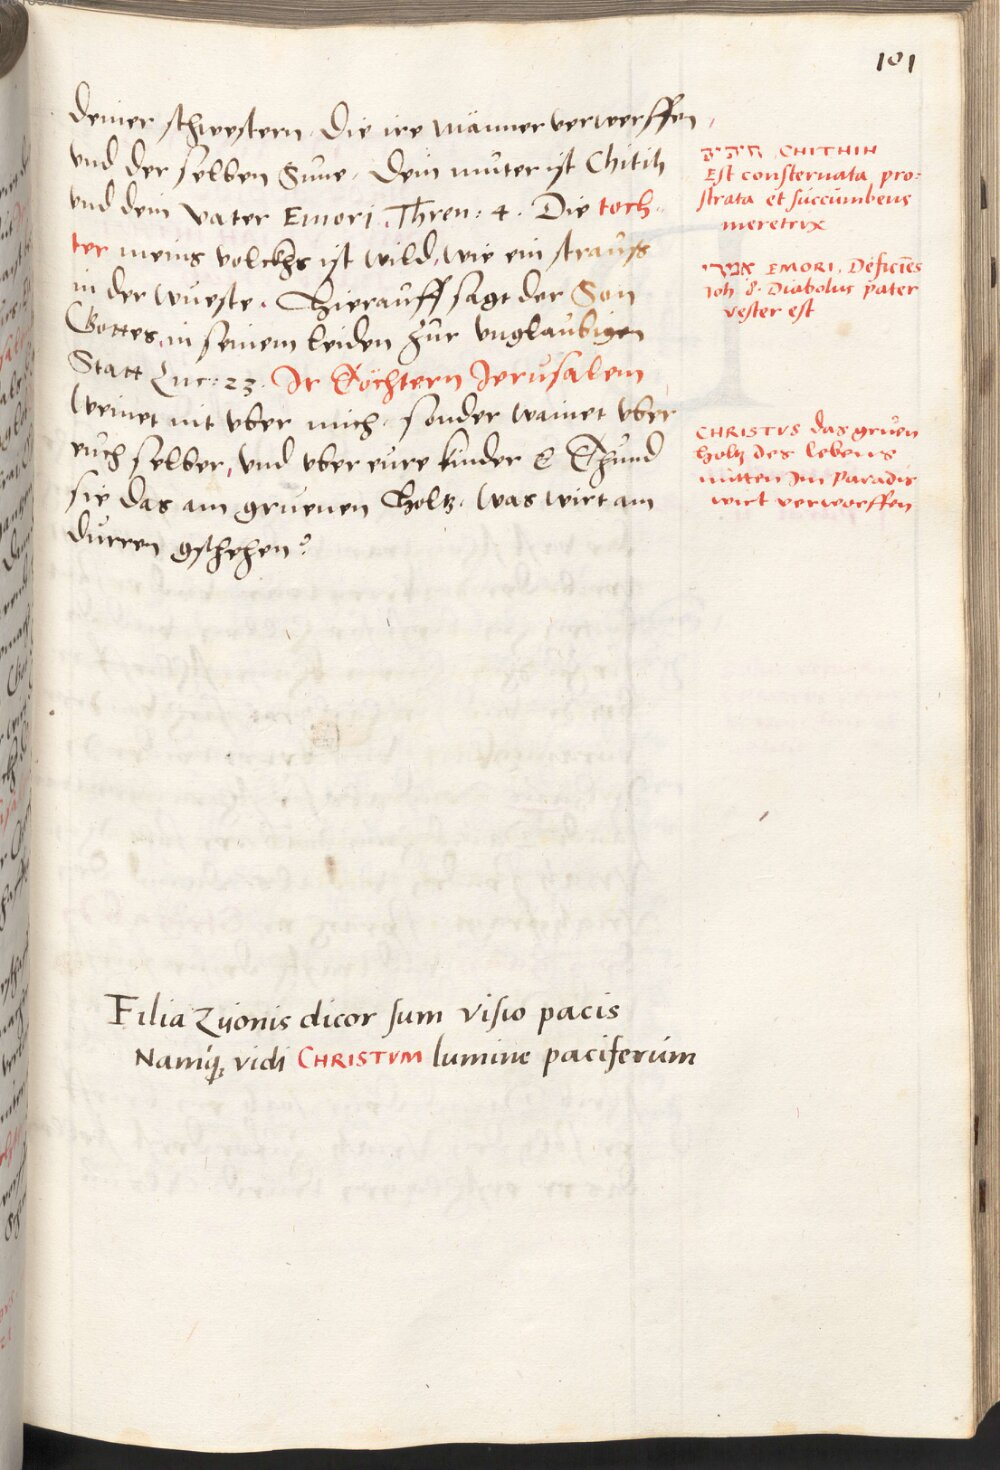 101
deiner schwestern. Die ire männer verwerffen,
vnd der selben Süne. Dein muter ist Chitih
vnd dein vater Emori. Thren: 4. Die toch-
ter meins volckhs ist wild, wie ein strauss
in der wueste. Hierauff sagt der Son
Gottes, in seinem leiden zur vnglaubigen
Statt Luc: 23. Ir Töchtern Jerusalem
Weinet nit vber mich, sonder wainet vber
euch selber, vnd vber eure kinder & Thund
sie das am gruenen Holtz. Was wirt am
durren gschehen?
CHITHIH
Est consternata pro=
strata et succumbens
meretrix
אמרי EMORI. Deficiēs
Joh 8. Diabolus pater
vester est
CHRISTVS das gruen
holtz des lebens
mitten Im paradis
wirt verworffen
Filia Zyonis dicor sum visio pacis
Namq; vidi CHRISTVM lumine paciferum